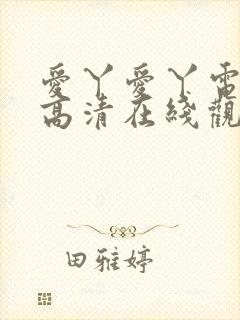 愛丫愛丫電
高清在綫觀
田雅婷